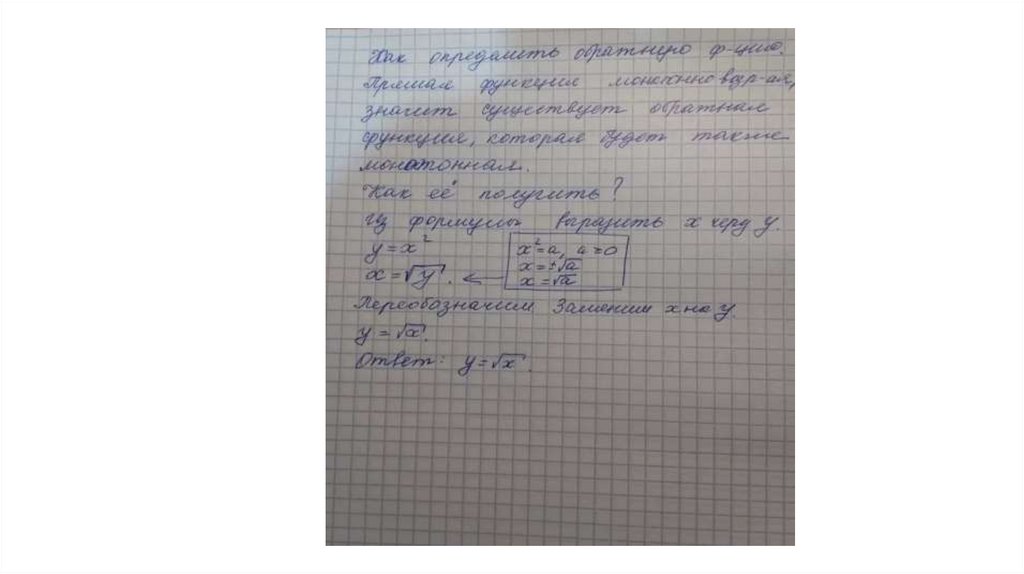 Как определить обратную ф-цию.
Прямая функция монотонно возр-ая,
значит существует обратная
функция, которая будет также
монотонная.
Как её получить?
Из формулы выразить x через y.
y = x²
x = √y.
x² = a, a = 0
x = ±√a
x = √a
Переобозначим Заменим x на y.
y = √x.
Ответ: y = √x.